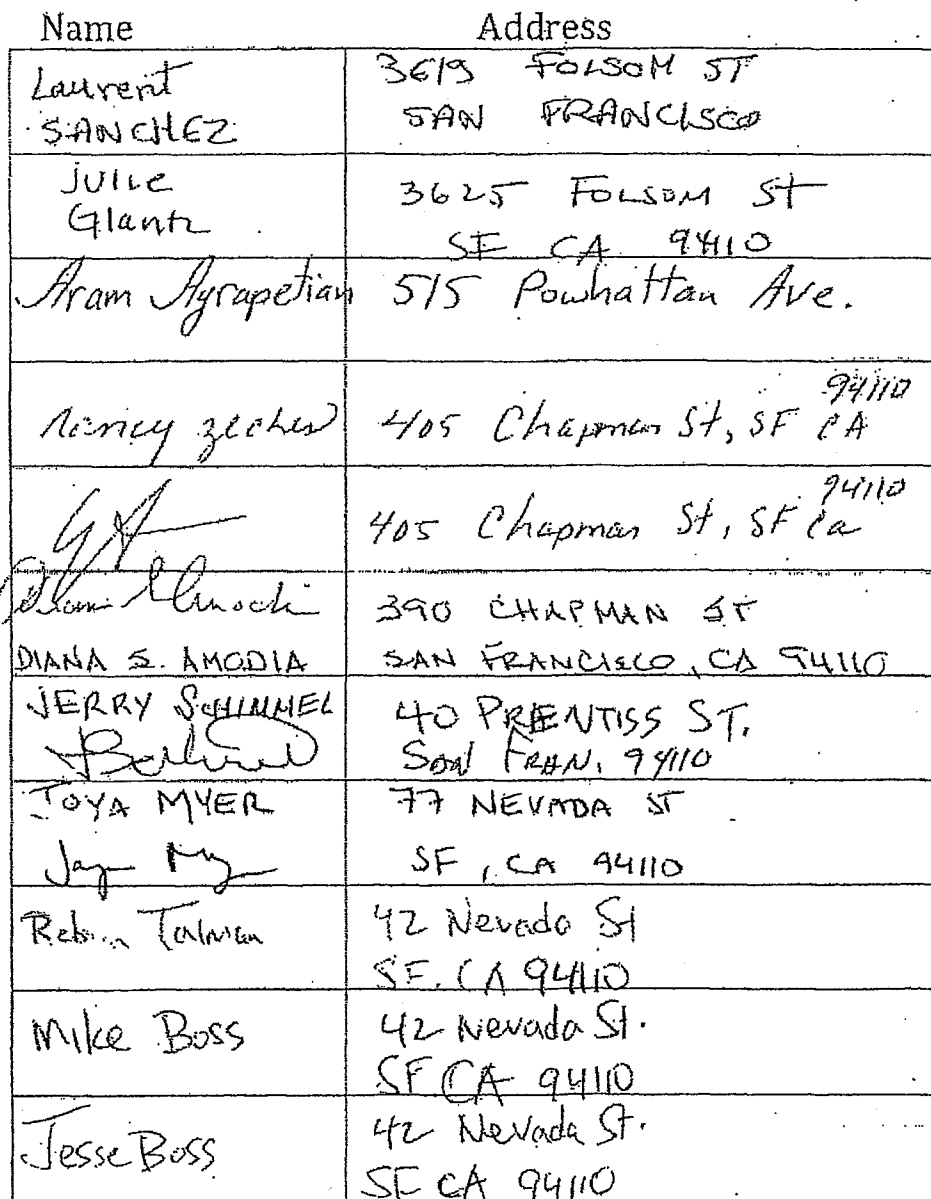 Name Address
Laurent 3619 FOLSOM ST
SANCHEZ SAN FRANCISCO
Julie 3625 FOLSOM St
Glantz SF CA 94110
Aram Ayrapetian 515 Powhattan Ave.
94110
Nancy Zecher 405 Chapman St, SF CA
94110
405 Chapman St, SF Ca
390 CHAPMAN ST
DIANA S. AMODIA SAN FRANCISCO, CA 94110
JERRY SCHIMMEL 40 PRENTISS ST.
San FRAN. 94110
JOYA MYER 77 NEVADA ST
SF, CA 94110
Talman 42 Nevada St
SF, CA 94110
Mike Boss 42 Nevada St.
SF CA 94110
Jesse Boss 42 Nevada St.
SF CA 94110